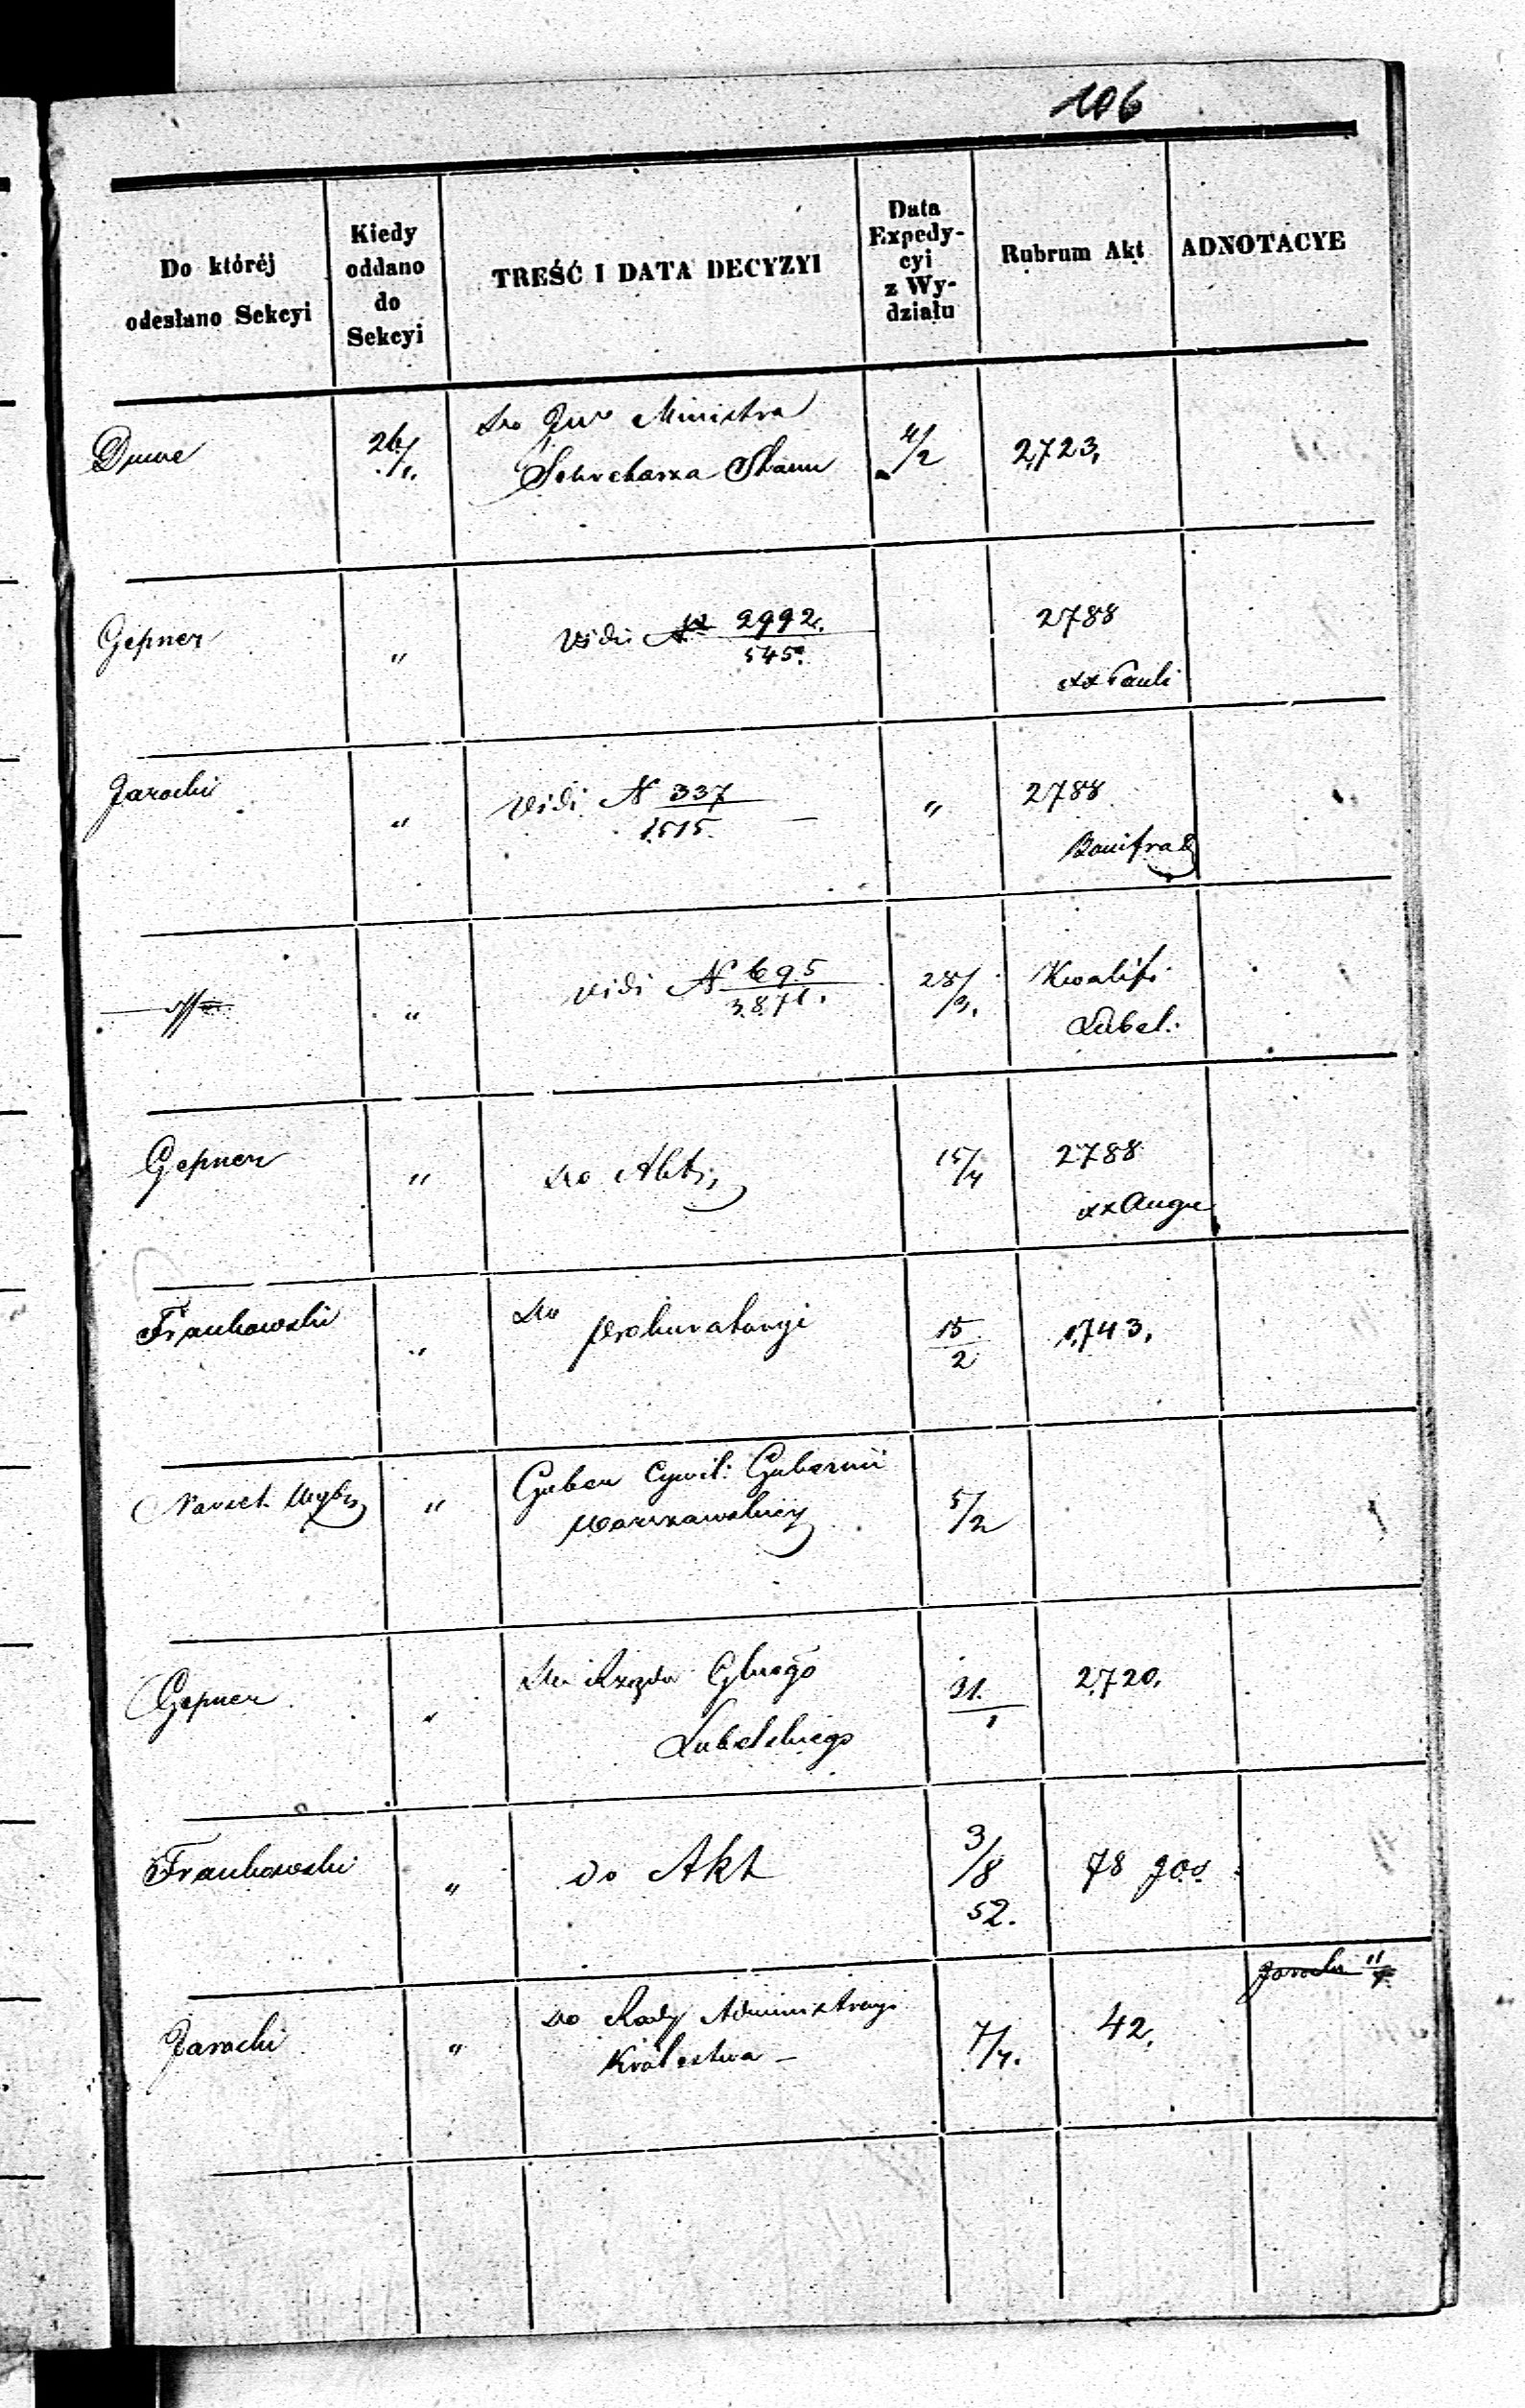 106
Do któréj
odesłano Sekcyi
Kiedy
oddano
do
Sekcyi
TREŚĆ I DATA DECYZYI
Data
Expedy-
cyi
z Wy-
działu
Rubrum Akt
ADNOTACYE
26/1.
do Ministra
Sekretarza Stanu
4/2
2723.
Gepner
"
Vidi N 2992.
545.
2788
xx Pauli
Jarocki
"
Vidi N 337
1515.
"
2788
Bonifra
"
vidi N 695
3871.
28/3.
Kwalif:
Lubel:
Gepner
"
do Akt
15/4
2788
xx Augu
Frankowski
"
do
prokuratoryi
15
2
1743.
"
Guber Cywil: Gubernii
Warszawskiey
5/2
Gepner
"
do Rządu Gbnego
Lubelskiego
31.
1
2720.
Frankowski
"
do Akt
3/8
52.
78
Jarocki
"
do Rady Administracyi
Królestwa -
7/4.
42.
Jarocki 11